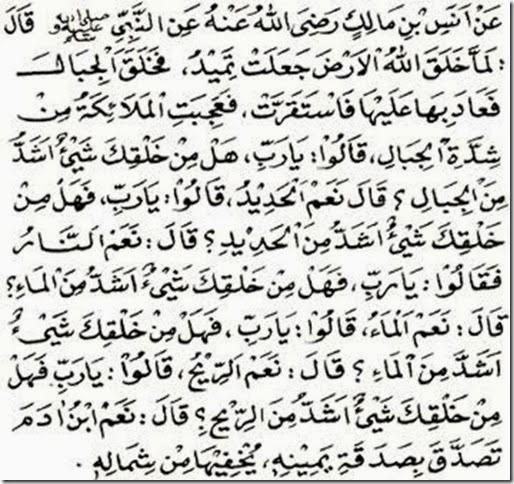 عَنْ اَنَسِ بْنِ مَالِكٍ رَضِىَ اللهُ عَنْهُ عَنِ النَّبِيِّ ﷺ قَالَ
: لَمَّا خَلَقَ اللهُ الاَرْضَ جَعَلَتْ تَمِيْدُ، فَخَلَقَ الْجِبَالَ
فَعَادَ بِهَا عَلَيْهَا فَاسْتَقَرَّتْ، فَعَجِبَتِ الْمَلَائِكَةُ مِنْ
شِدَّةِ الْجِبَالِ، قَالُوْا: يَارَبِّ، هَلْ مِنْ خَلْقِكَ شَيْئٌ اَشَدُّ
مِنَ الْجِبَالِ؟ قَالَ نَعَمْ الْحَدِيْدُ، قَالُوْا: يَارَبِّ، فَهَلْ مِنْ
خَلْقِكَ شَيْئٌ اَشَدُّ مِنَ الْحَدِيْدِ؟ قَالَ: نَعَمْ النَّارُ
فَقَالُوْا: يَارَبِّ، فَهَلْ مِنْ خَلْقِكَ شَيْئٌ اَشَدُّ مِنَ الْمَاءِ؟
قَالَ: نَعَمْ الْمَاءُ، قَالُوْا: يَارَبِّ، فَهَلْ مِنْ خَلْقِكَ شَيْئٌ
اَشَدَّ مِنَ الْمَاءِ؟ قَالَ: نَعَمْ الرِّيْحُ، قَالُوْا: يَارَبِّ فَهَلْ
مِنْ خَلْقِكَ شَيْئٌ اَشَدُّ مِنَ الرِّيْحِ؟ قَالَ: نَعَمْ ابْنُ ادَمَ
تَصَدَّقَ بِصَدَقَةِ يَمِيْنِهِ، يُخْفِيْهَا مِنْ شِمَالِهِ.